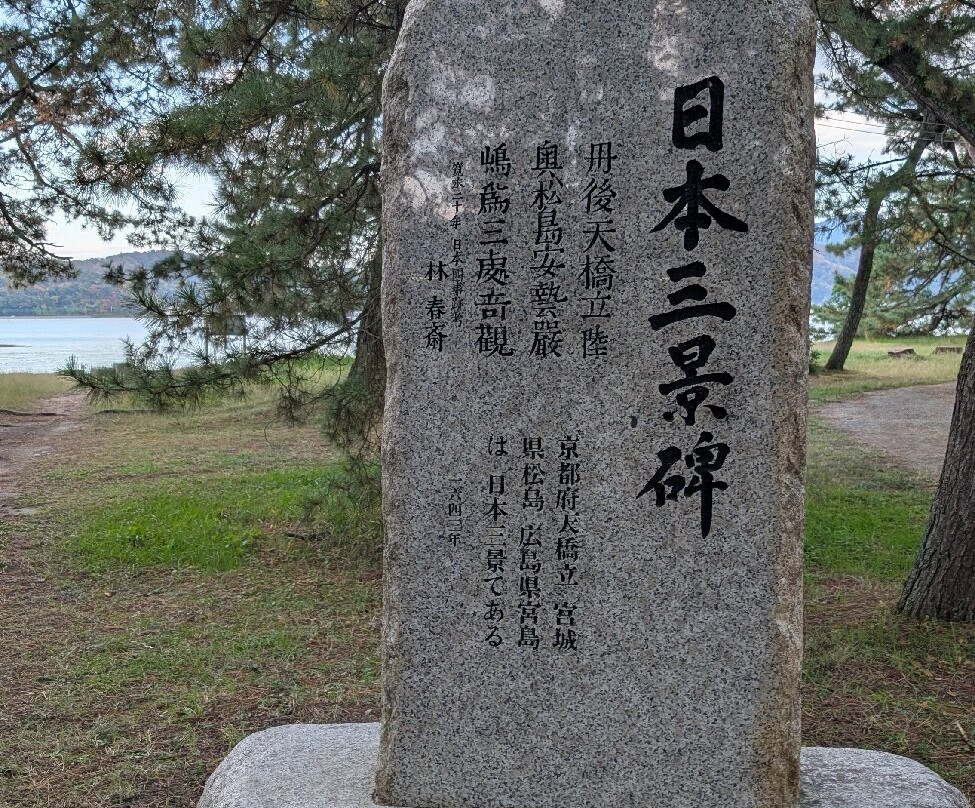 日本三景碑
丹後天橋立陸
奥松島安藝嚴
嶋爲三處奇觀
寛永二十年 日本国事跡考
林春斎
京都府天橋立 宮城
県松島 広島県宮島
は 日本三景である
一六四三年